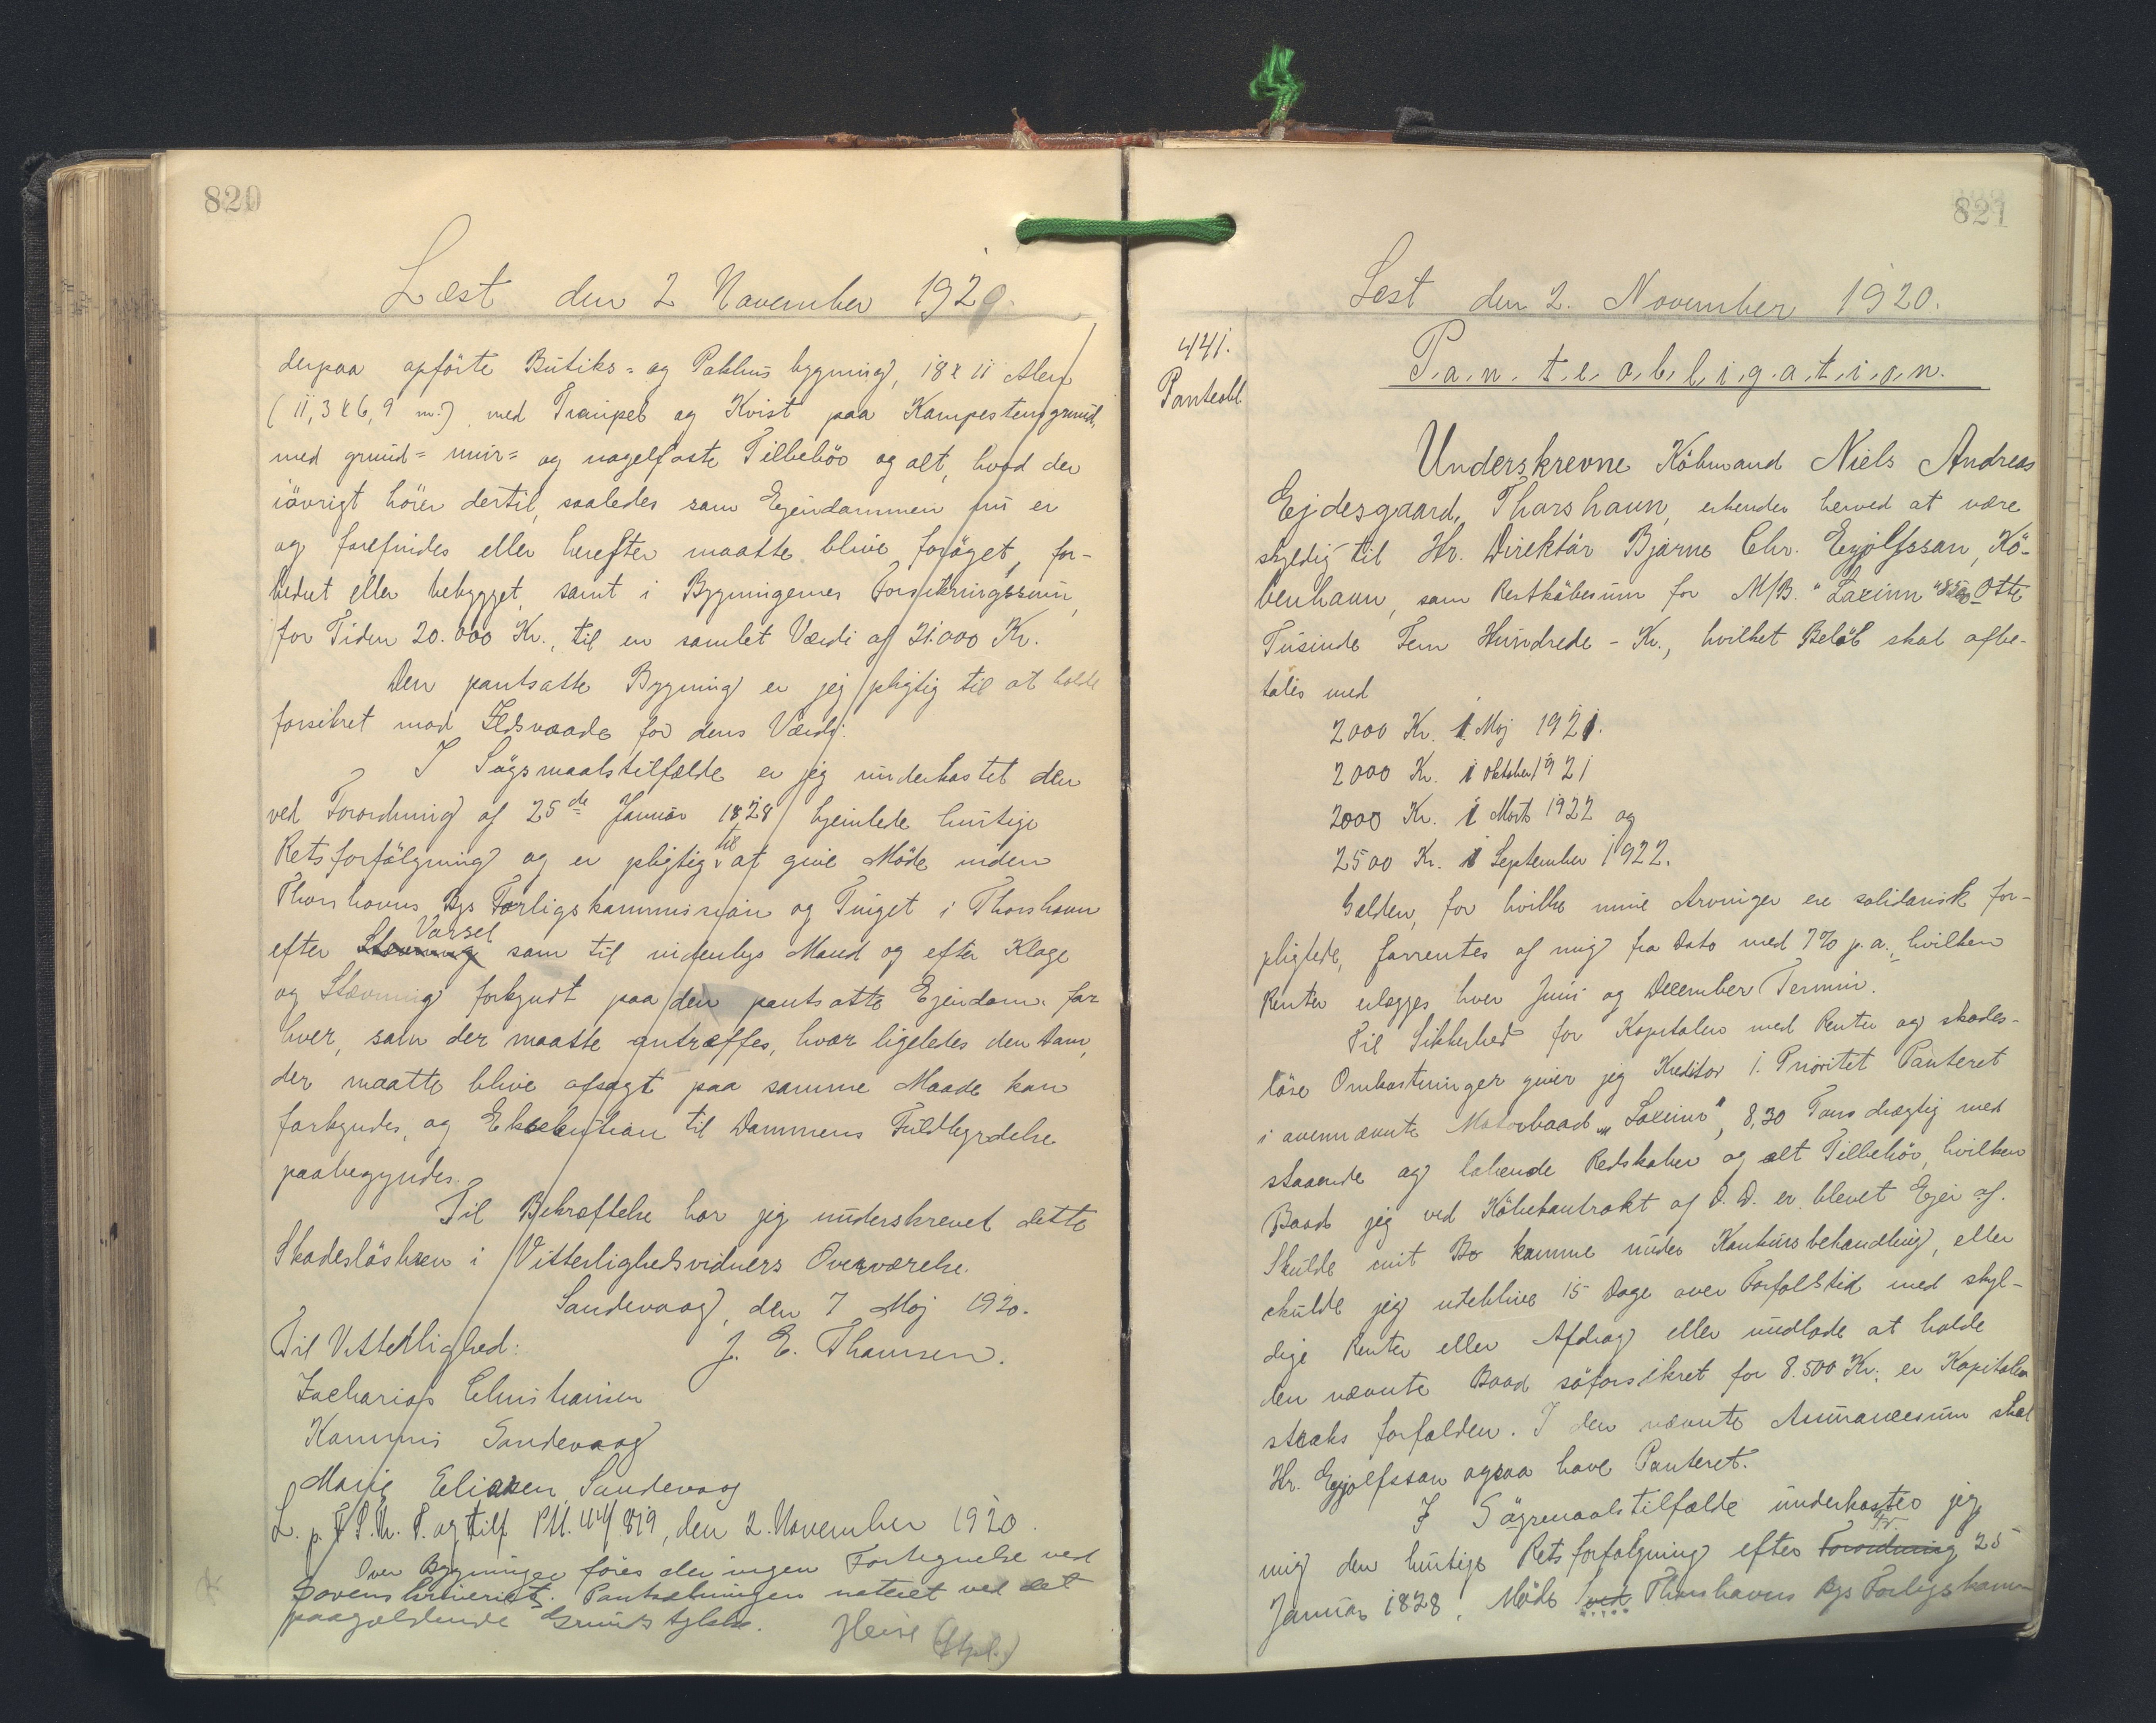 820
Læst den 2 November 1920.
derpaa opförte Butiks= og Pakhus bygning, 18 x 11 Alen
(11,3 x 6,9 m.) med Trempel og Kvist paa Kampestensgrund,
med grund= mur= og nagelfaste Tilbehör og alt, hvad der
iövrigt hörer dertil, saaledes som Ejendommen nu er
og forefindes eller herefter maatte blive foröget, for-
bedret eller bebygget, samt i Bygningernes Forsikringssum,
for Tiden 20.000 Kr., til en samlet Værdi af 21.000 Kr.
Den pantsatte Bygning er jeg pligtig til at holde
forsikret mod Ildsvaade for dens Værdi.
I Sögsmaalstilfælde er jeg underkastet den
ved Forordning af 25de Januar 1828 hjemlede hurtige
Retsforfölgning og er pligtig til at give Möde inden
Thorshavns Bys Forligskommission og Tinget i Thorshavn
efter Stævning Varsel som til indenbys Mand og efter Klage
og Stævning forkyndt paa den pantsatte Ejendom for
hver, som der maatte antræffes, hvor ligeledes den Dom,
der maatte blive afsagt paa samme Maade kan
forkyndes, og Eksekution til Dommens Fuldbyrdelse
paabegyndes.
Til Bekræftelse har jeg underskrevet dette
Skadeslösbrev i Vitterlighedsvidners Overværelse.
Sandevaag, den 7 Maj 1920.
Til Vitterlighed: J. E. Thomsen.
Zacharias Christiansen
Kommis Sandevaag
Marie Eliasen, Sandevaag
L. p. F. P. K. P. og tilf. P.M. 44/819, den 2. November 1920.
Over Bygninger föres der ingen Fortegnelse ved
Sorenskriveriet. Pantsætningen noteret ved det
paagældende Grundstykke.
Heise (Stpl.)
821
Læst den 2. November 1920.
441.
Panteobl.
Panteobligation.
Underskrevne Köbmand Niels Andreas
Ejdesgaard, Thorshavn, erkender herved at være
skyldig til Hr. Direktör Bjarne Chr. Eyjolfsson, Kö-
benhavn, som Restköbesum for M/B. "Laxinn" 8500 - Otte
Tusinde Fem Hundrede - Kr., hvilket Belöb skal afbe-
tales med
2000 Kr. i Maj 1921.
2000 Kr. i Oktober 1921
2000 Kr. i Marts 1922 og
2500 Kr. i September 1922.
Gælden, for hvilke mine Arvinger ere solidarisk for-
pligtede, forrentes af mig fra Dato med 7% p.a., hvilken
Renter erlægges hver Juni og December Termin.
Til Sikkerhed for Kapitalen med Renter og skades-
löse Omkostninger giver jeg Kreditor 1. Prioritet Panteret
i ovennævnte Motorbaad "Laxinn", 8,30 Tons drægtig med
staaende og löbende Redskaber og alt Tilbehör, hvilken
Baad jeg ved Köbekontrakt af D. D. er blevet Ejer af.
Skulde mit Bo komme under Konkursbehandling, eller
skulde jeg udeblive 15 Dage over Forfaldstid med skyl-
dige Renter eller Afdrag eller undlade at holde
den nævnte Baad söforsikret for 8.500 Kr. er Kapitalen
straks forfalden. I den nævnte Assurancesum skal
Hr. Eyjolfsson ogsaa have Panteret.
I Sögsmaalstilfælde underkaster jeg
mig den hurtige Retsforfölgning efter Forordning Fr. 25
Januar 1828, Möde ved Thorshavns Bys Forligskomm